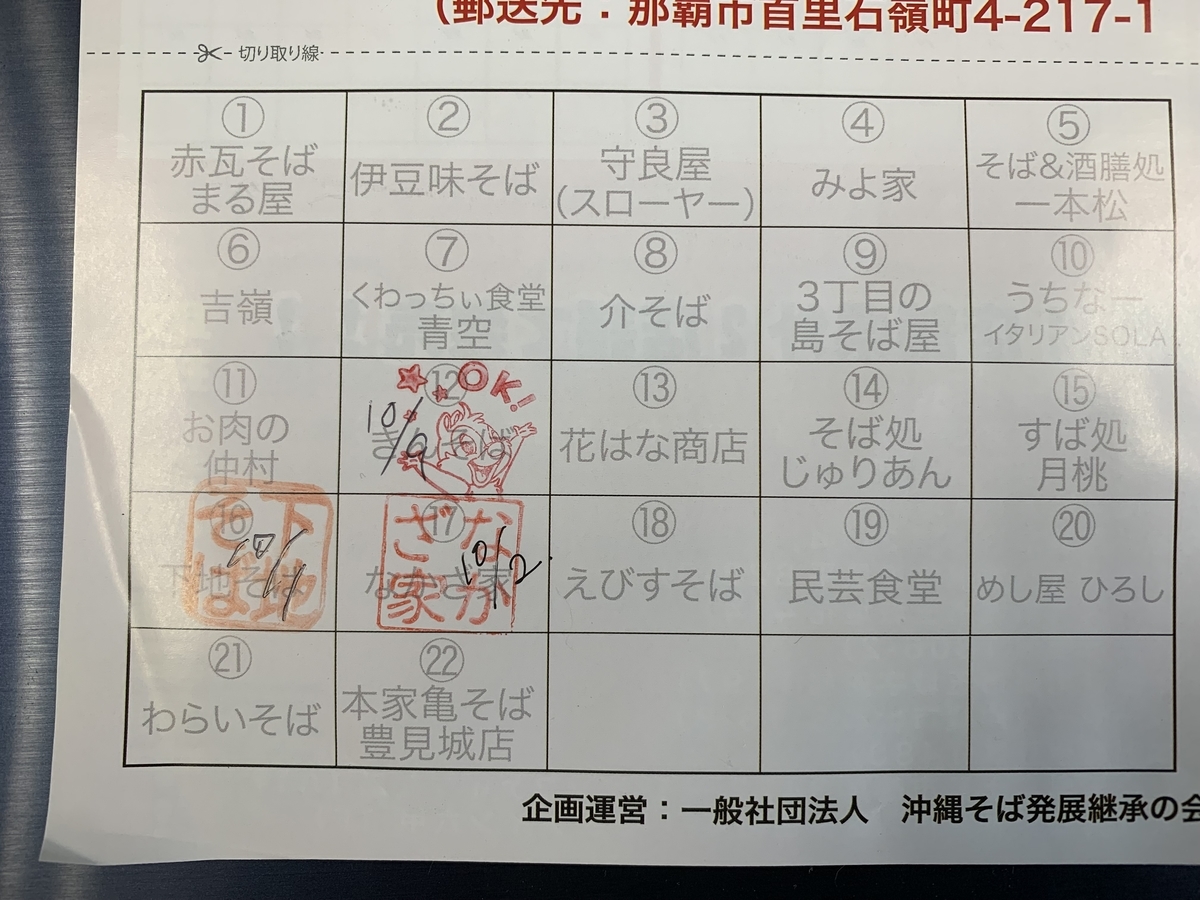 (郵送先：那覇市首里石嶺町4-217-1
切り取り線
①
赤瓦そば
まる屋
②
伊豆味そば
③
守良屋
(スローヤー)
④
みよ家
⑤
そば&酒膳処
一本松
⑥
吉嶺
⑦
くわっちぃ食堂
青空
⑧
介そば
⑨
3丁目の
島そば屋
⑩
うちなー
イタリアンSOLA
⑪
お肉の
仲村
⑫
OK!
10/9
そば
⑬
花はな商店
⑭
そば処
じゅりあん
⑮
すば処
月桃
⑯
下地そば
下地
そば
⑰
なかざ家
なか
ざ家
10/2
⑱
えびすそば
⑲
民芸食堂
⑳
めし屋 ひろし
㉑
わらいそば
㉒
本家亀そば
豊見城店
企画運営：一般社団法人 沖縄そば発展継承の会